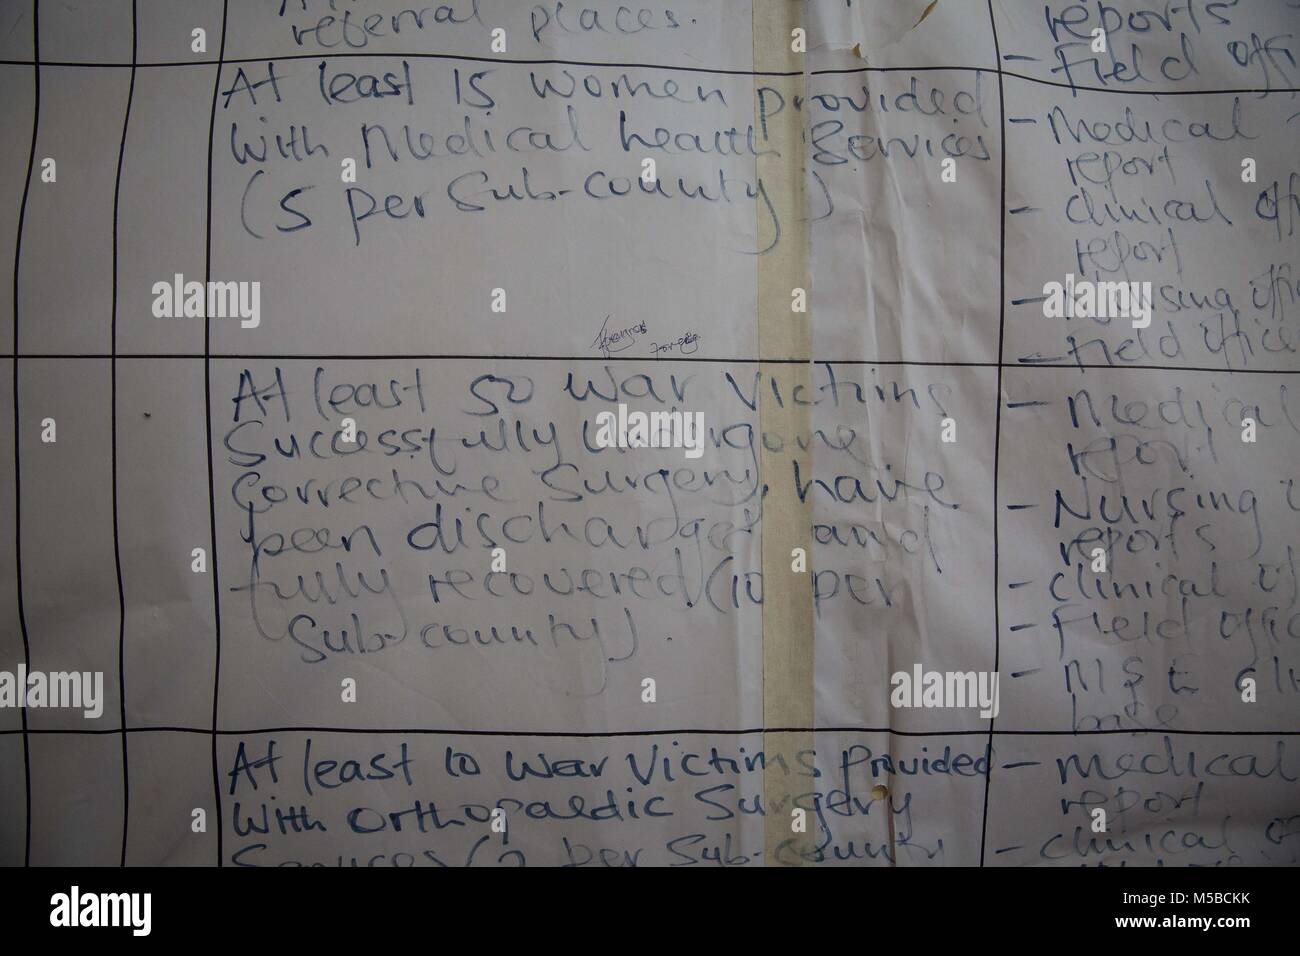 referral places.
At least 15 women provided
with Medical health Services
(5 per Sub-county)
At least 50 war victims
Successfully Undergone
Corrective Surgery, have
been discharged and
fully recovered (10 per
Sub-county).
At least 10 war victims provided
with orthopaedic Surgery
Services (2 per Sub-county
reports
- Field
- Medical
report
- Clinical
report
- Nursing
- Field office
- Medical
report
- Nursing
reports
- Clinical
- Field
- M & E
base
- medical
report
- clinical
alamy
alamy stock photo
M5BCKK
www.alamy.com